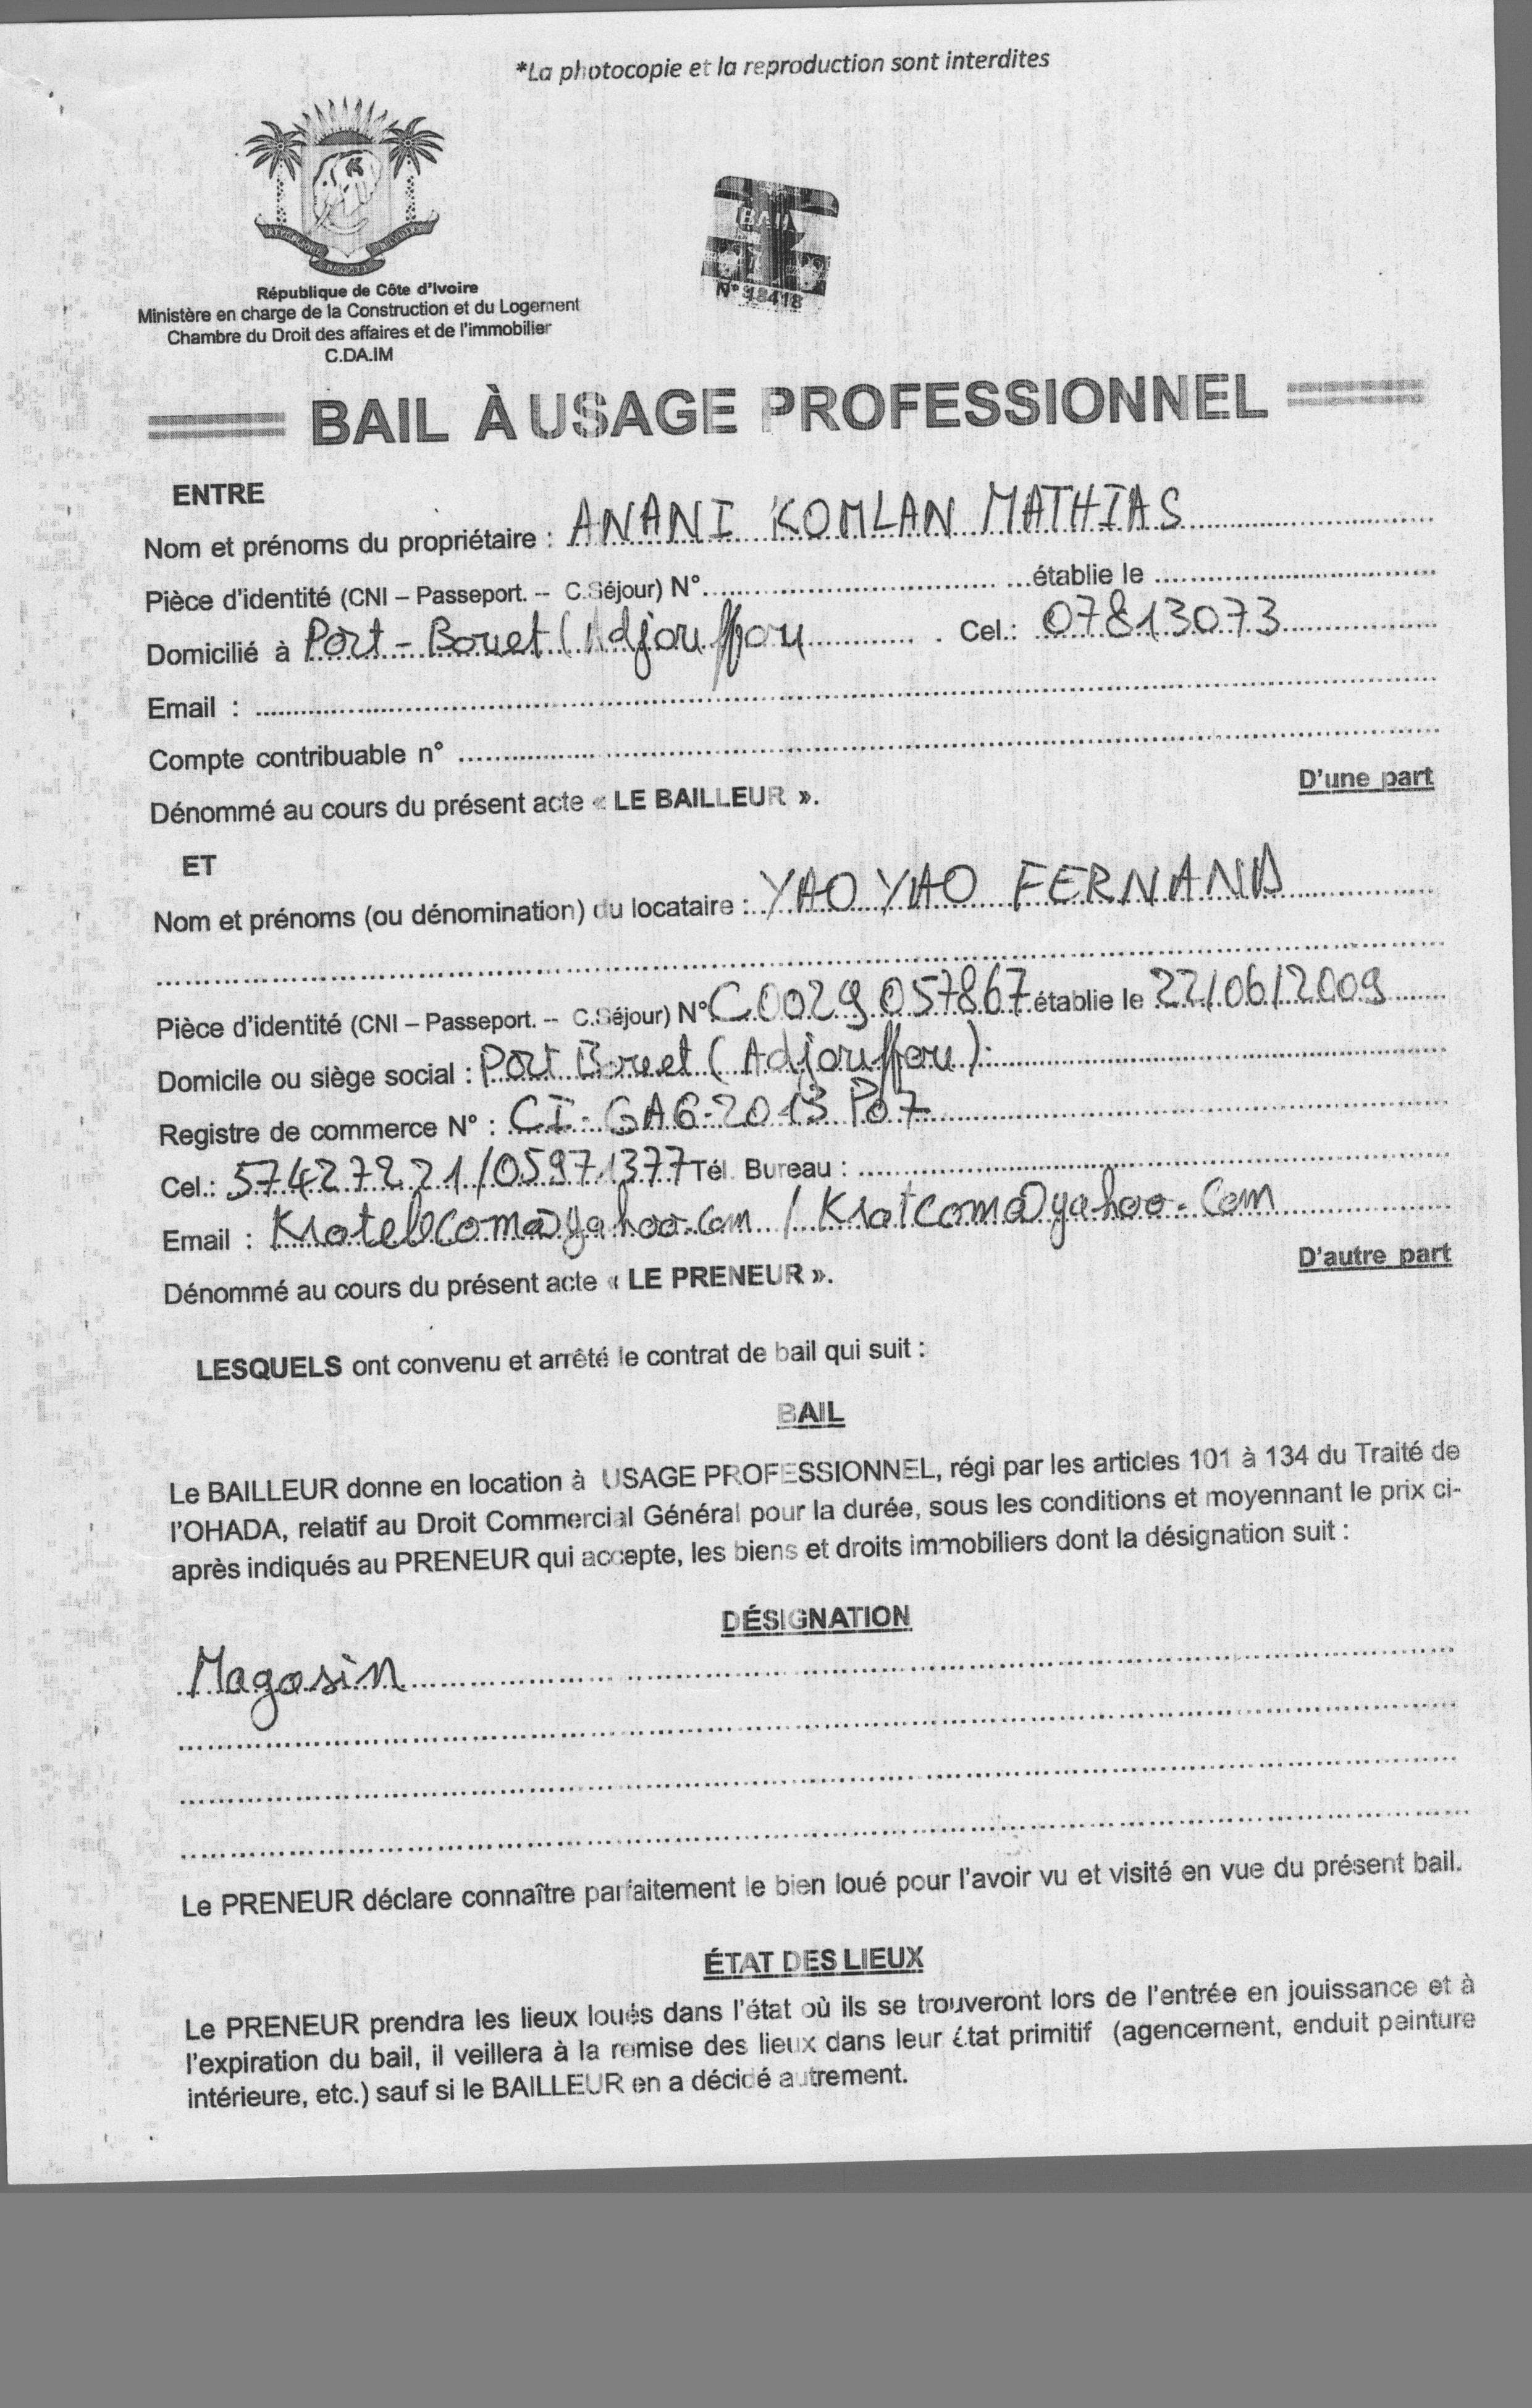 *La photocopie et la reproduction sont interdites
BAIL
N° 18418
République de Côte d'Ivoire
Ministère en charge de la Construction et du Logement
Chambre du Droit des affaires et de l'immobilier
C.DA.IM
BAIL À USAGE PROFESSIONNEL
ENTRE
Nom et prénoms du propriétaire : ANANI KOMLAN MATHIAS
Pièce d'identité (CNI – Passeport. -- C.Séjour) N°.............................établie le .............................
Domicilié à Port-Bouet (Adjouffou ............. . Cel.: 07813073
Email : .............................
Compte contribuable n° .............................
Dénommé au cours du présent acte « LE BAILLEUR ». D'une part
ET
Nom et prénoms (ou dénomination) du locataire : YAO YAO FERNAND
.............................
Pièce d'identité (CNI – Passeport. -- C.Séjour) N° C0029057867 établie le 22/06/2009
Domicile ou siège social : Port Bouet (Adjouffou)
Registre de commerce N° : CI-GAG-2013 Po7
Cel.: 57427221/05971377 Tél. Bureau : .............................
Email : Kratelecoma@yahoo.com / Kratcoma@yahoo.com
Dénommé au cours du présent acte « LE PRENEUR ». D'autre part
LESQUELS ont convenu et arrêté le contrat de bail qui suit :
BAIL
Le BAILLEUR donne en location à USAGE PROFESSIONNEL, régi par les articles 101 à 134 du Traité de
l'OHADA, relatif au Droit Commercial Général pour la durée, sous les conditions et moyennant le prix ci-
après indiqués au PRENEUR qui accepte, les biens et droits immobiliers dont la désignation suit :
DÉSIGNATION
Magasin
Le PRENEUR déclare connaître parfaitement le bien loué pour l'avoir vu et visité en vue du présent bail.
ÉTAT DES LIEUX
Le PRENEUR prendra les lieux loués dans l'état où ils se trouveront lors de l'entrée en jouissance et à
l'expiration du bail, il veillera à la remise des lieux dans leur état primitif (agencement, enduit peinture
intérieure, etc.) sauf si le BAILLEUR en a décidé autrement.